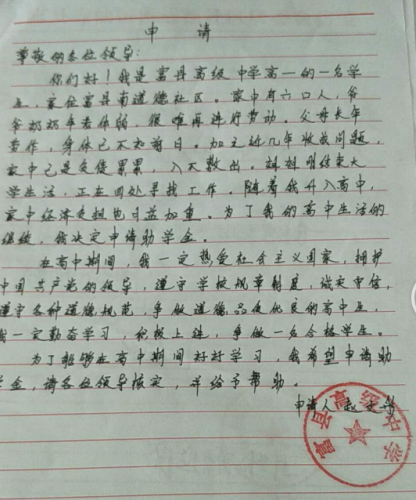 申 请
尊敬的各位领导:
你们好!我是富县高级中学高一的一名学
生,家住富县南道德社区。家中有六口人,爷
爷奶奶年老体弱,很难再进行劳动。父母长年
劳作,身体已不如前日。加之近几年收成问题,
家中已是负债累累,入不敷出。姐姐刚结束大
学生活,正在四处寻找工作,随着我升入高中,
家中经济负担也日益加重。为了我的高中生活的
继续,我决定申请助学金。
在高中期间,我一定热爱社会主义国家,拥护
中国共产党的领导,遵守学校规章制度,诚实守信,
遵守各种道德规范,争做道德品质优良的高中生,
我一定勤奋学习,积极上进,争做一名合格学生。
为了能够在高中期间好好学习,我希望申请助
学金,请各位领导核实,并给予帮助。
申请人 赵
富县高级中学